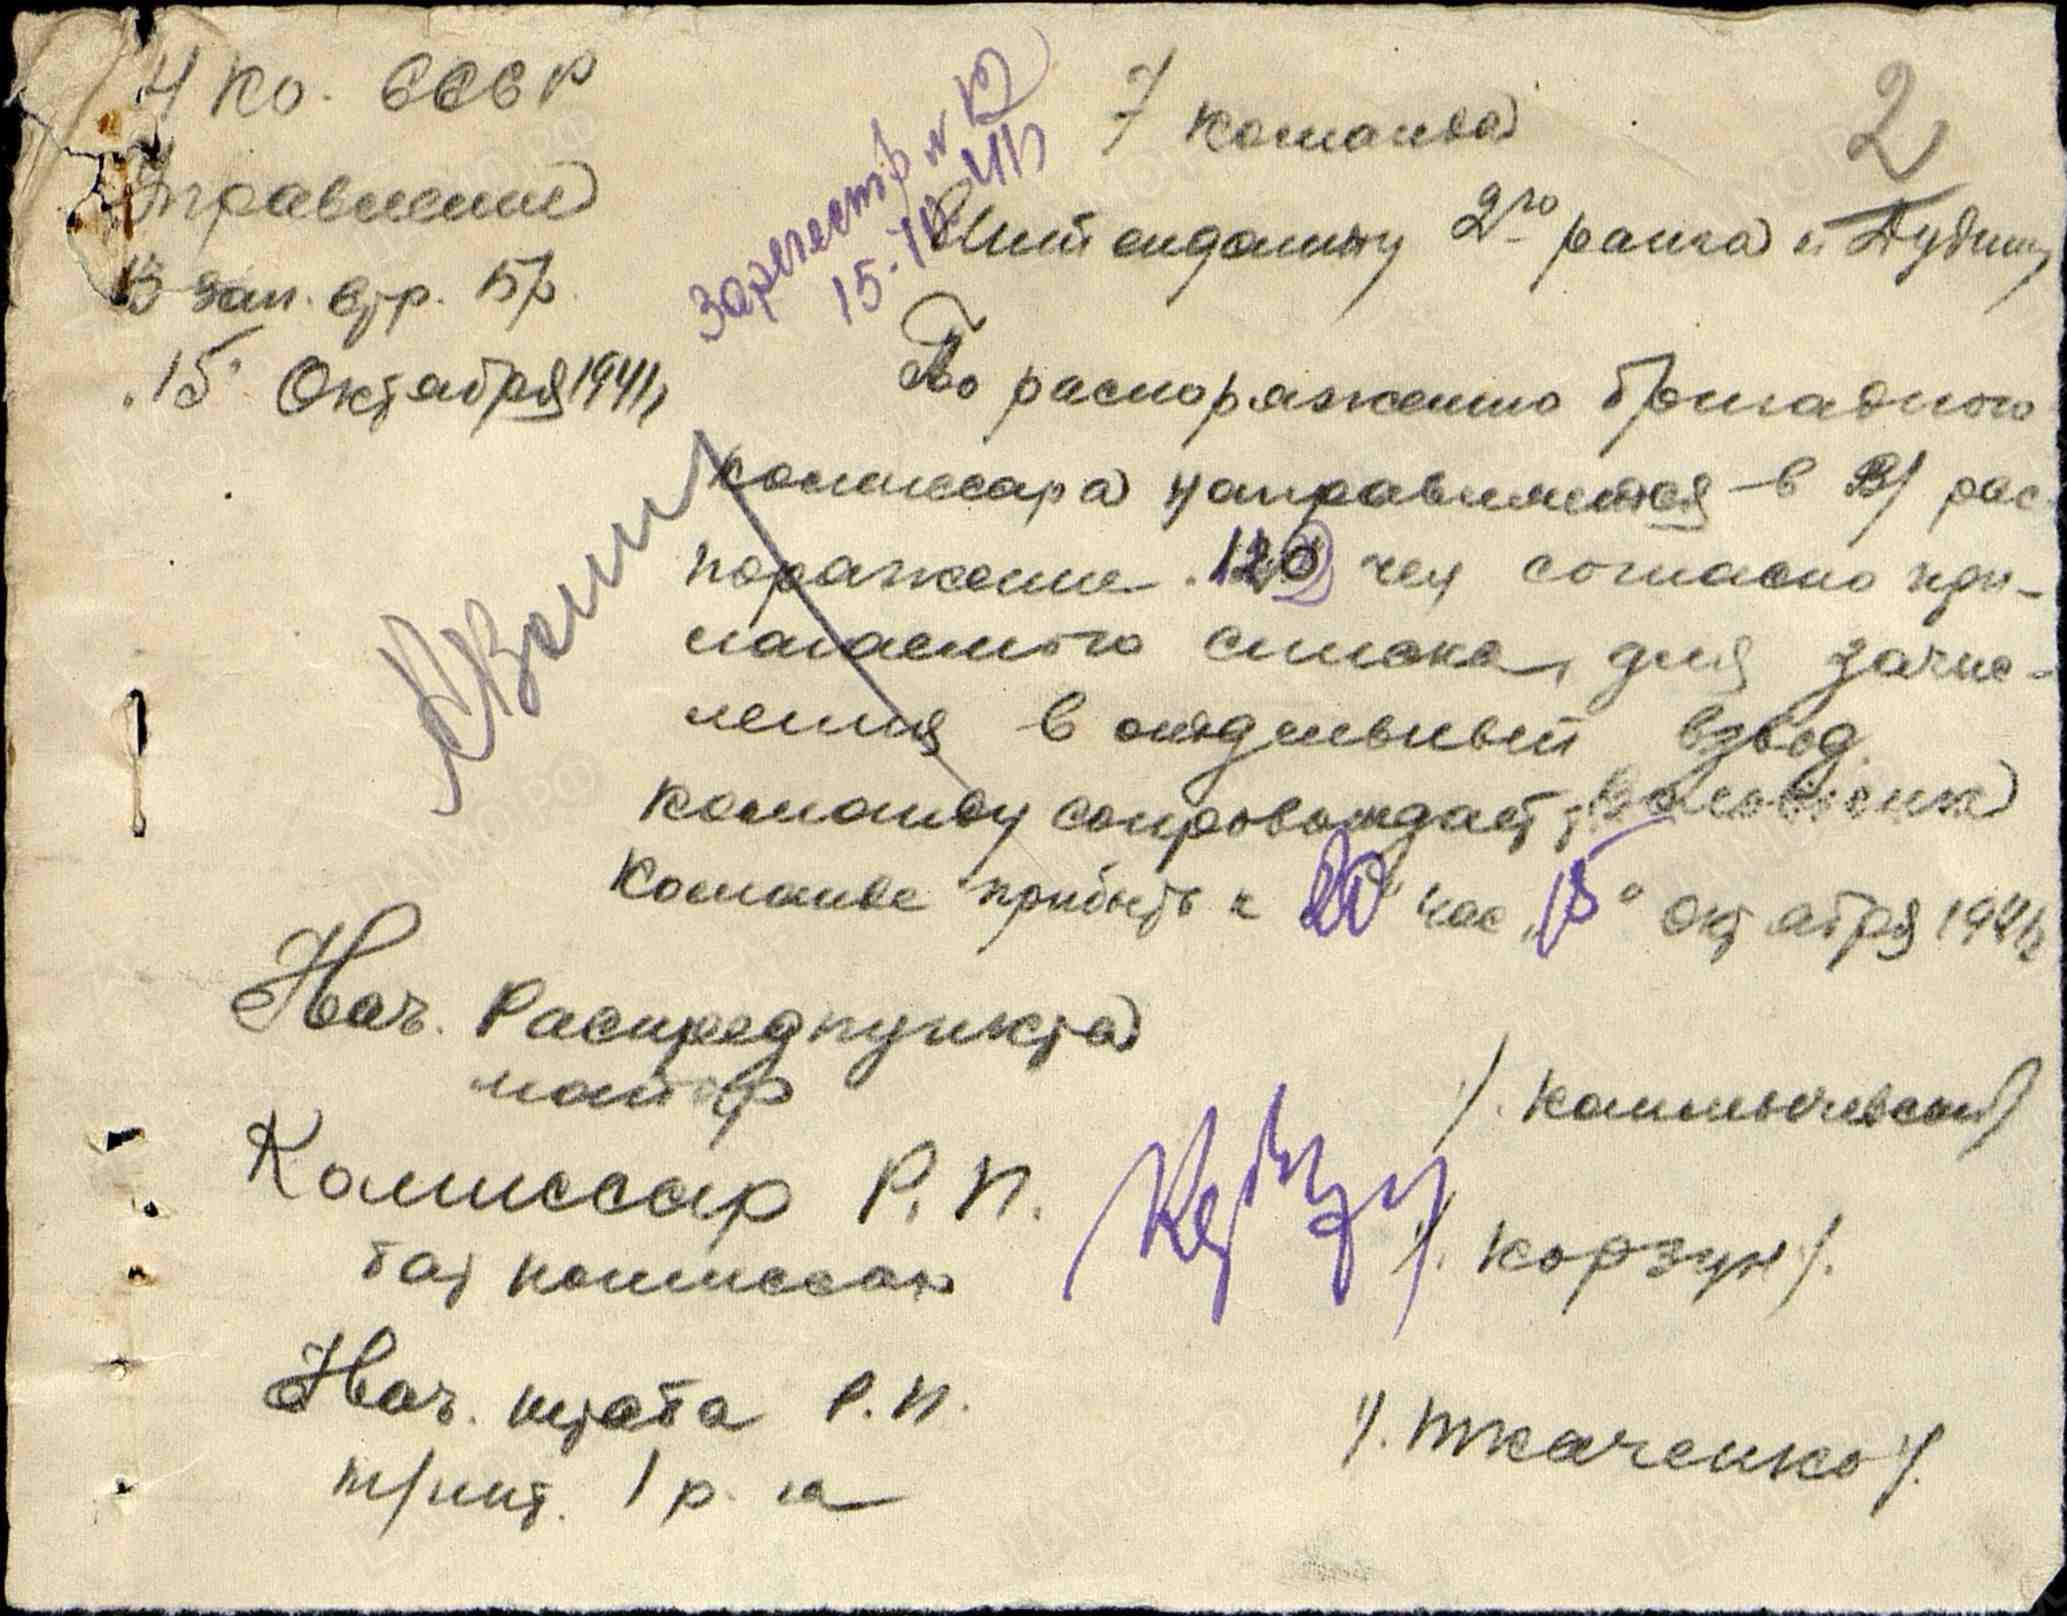 НКО. СССР
Управление
13 зап. стр. бр.
"15" Октября 1941 г
Зарегестр N 12
15-10-41 г
7 команда
2
Интенданту 2го ранга т. Дудину
По распоряжению бригадного
комиссара направляется в В/ рас
поряжение 120 чел согласно при-
лагаемого списка, для зачис-
ления в отдельный взвод.
Команду сопровождает
Команде прибыть к 20 час "15" октября 1941 г
Нач. Распредпункта
майор
Комиссар Р.П.
бат комиссар
/. Корзун /.
Нач. штаба Р.П.
т/инт. 1 р. га
/. Ткаченко /.